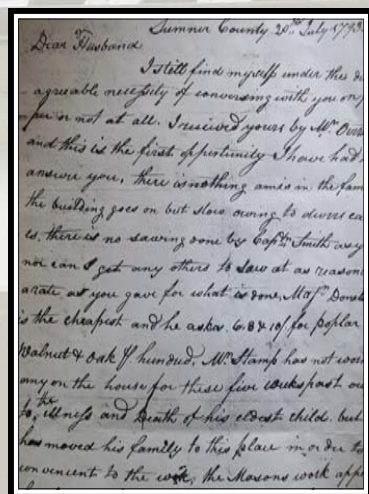 Sumner County 20th July 1793
Dear Husband
I still find myself under this dis
agreable necessity of conversing with you on p
per or not at all. I received yours by Mr.
and this is the first oppertunity I have had
answer you, there is nothing amis in the fam
the building goes on but slow owing to divers ca
es, there is no sawing done by Captn Smith as y
nor can I get any others to saw at as reason
a rate as you gave for what is done, Majr
is the cheapest and he asks 6. 8 & 10/ for poplar
Walnut & Oak hundred. Mr. Stamp has not wor
any on the house for these five weeks past ow
to the illness and Death of his eldest child. but
has moved his family to this place in order to
convenient to the work, the Masons work appe